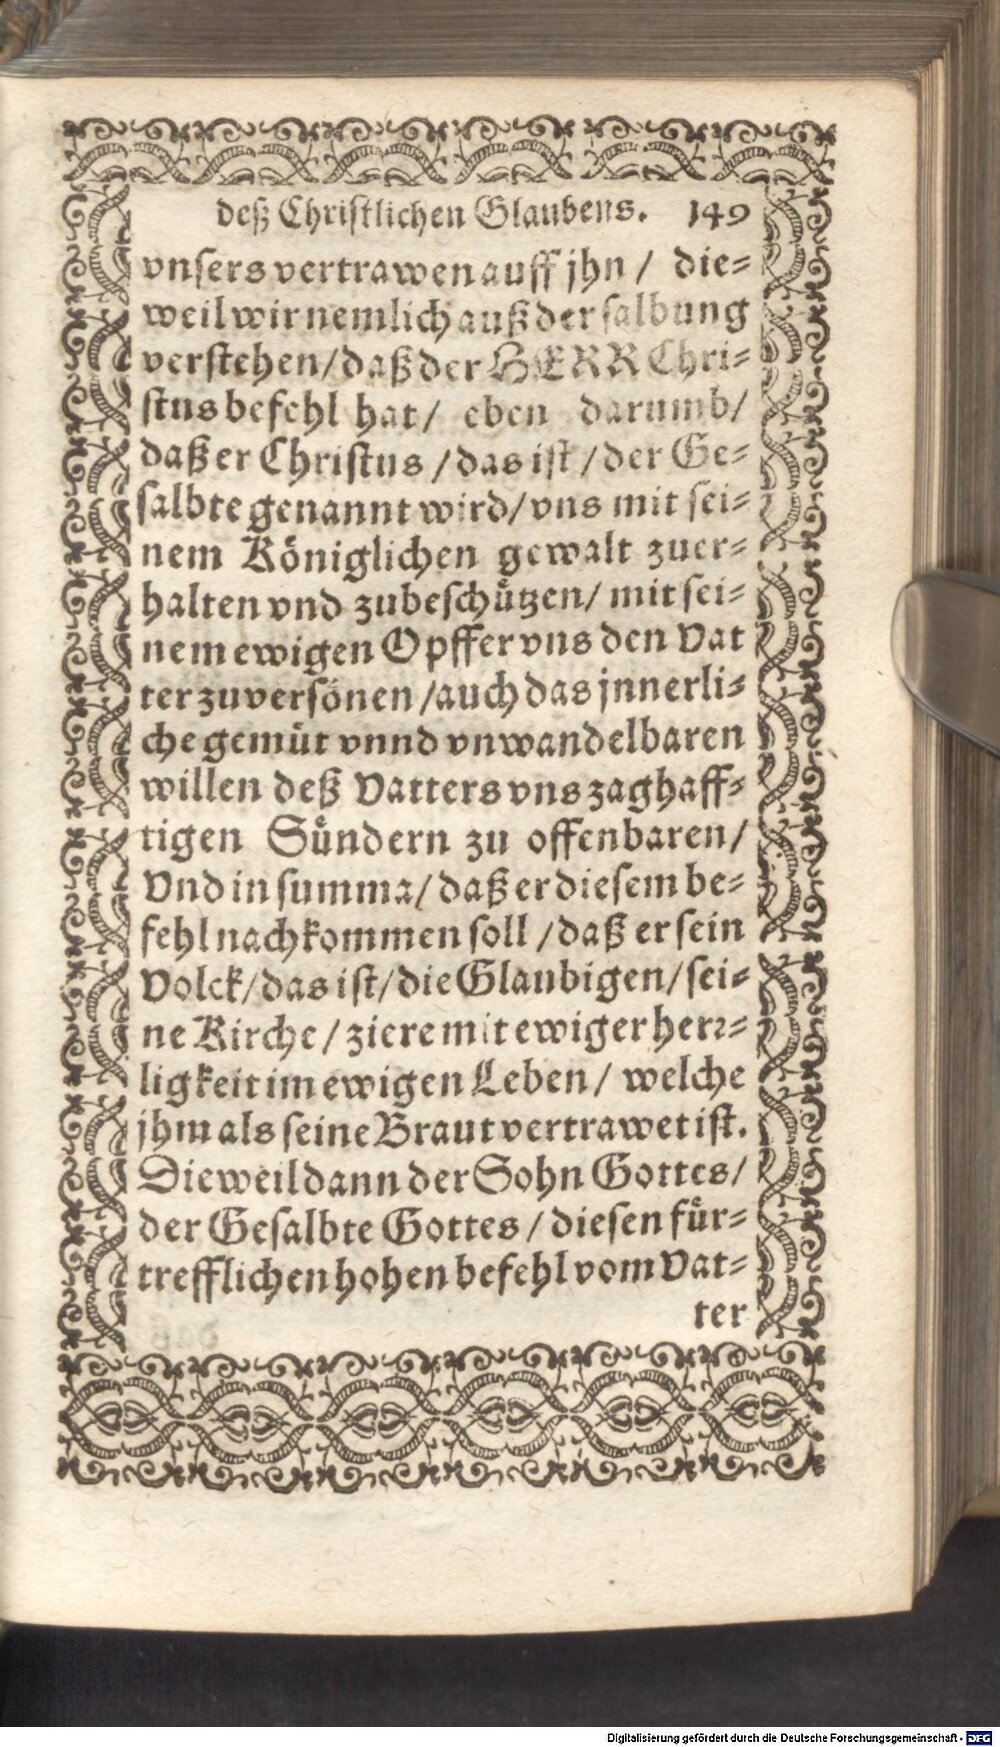 deß Christlichen Glaubens. 149
vnsers vertrawen auff jhn / die=
weil wir nemlich auß der salbung
verstehen / daß der HERR Chri=
stus befehl hat / eben darumb /
daß er Christus / das ist / der Ge=
salbte genannt wird / vns mit sei=
nem Königlichen gewalt zuer=
halten vnd zubeschützen / mit sei=
nem ewigen Opffer vns den Vat
ter zuversönen / auch das jnnerli=
che gemüt vnnd vnwandelbaren
willen deß Vatters vns zaghaff=
tigen Sündern zu offenbaren /
Vnd in summa / daß er diesem be=
fehl nachkommen soll / daß er sein
Volck / das ist / die Glaubigen / sei=
ne Kirche / ziere mit ewiger herr=
ligkeit im ewigen Leben / welche
jhm als seine Braut vertrawet ist.
Dieweil dann der Sohn Gottes /
der Gesalbte Gottes / diesen für=
trefflichen hohen befehl vom Vat=
ter
Digitalisierung gefördert durch die Deutsche Forschungsgemeinschaft - DFG